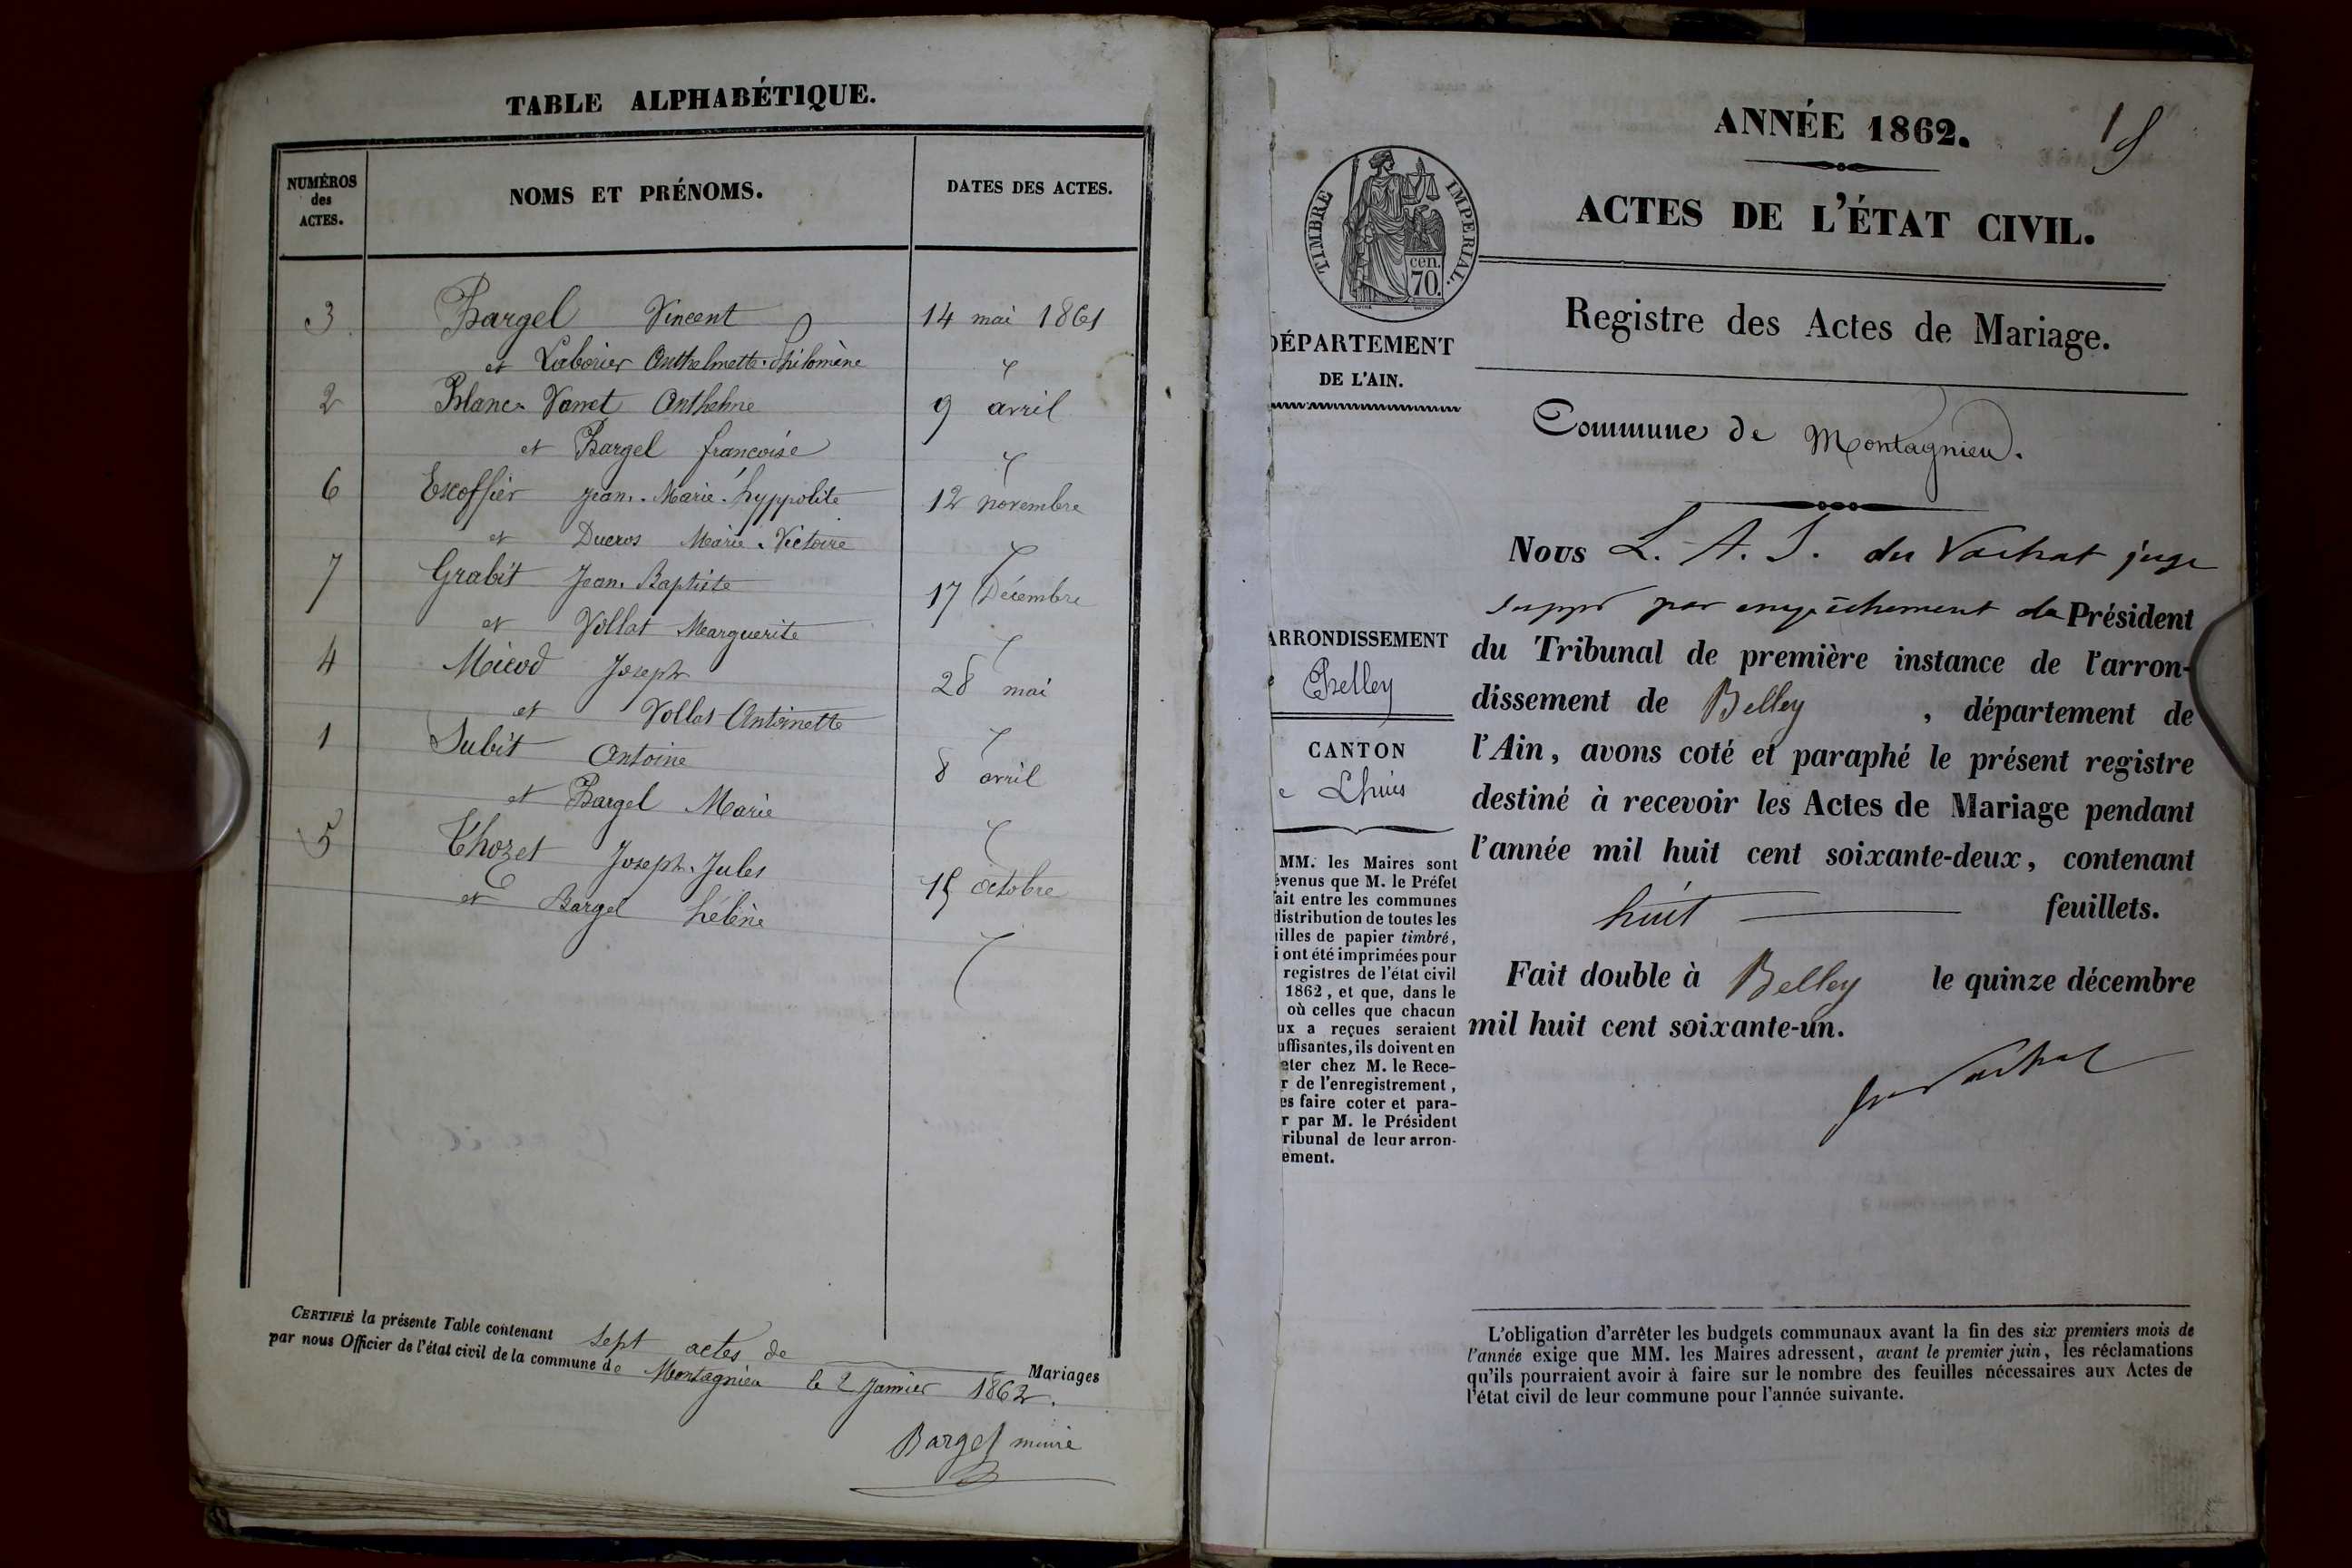 TABLE ALPHABÉTIQUE.
NUMÉROS
des
ACTES.
NOMS ET PRÉNOMS.
DATES DES ACTES.
3 Bargel Vincent 14 mai 1861
et Laborier Anthelmette. Philomène "
2 Blanc Anthelme 9 avril
et Bargel françoise "
6 Escoffier Jean. Marie. hyppolite 12 novembre
et Ducros Marie. Victoire "
7 Grabit Jean. Baptiste 17 Décembre
et Vollat Marguerite "
4 Micod Joseph 28 mai
et Vollat Antoinette "
1 Subit Antoine 8 avril
et Bargel Marie "
5 Thozet Joseph. Jules 15 octobre
et Bargel hélène "
CERTIFIÉ la présente Table contenant sept actes de Mariages
par nous Officier de l'état civil de la commune de Montagnieu le 2 Janvier 1862.
Bargel maire
ANNÉE 1862.
ACTES DE L'ÉTAT CIVIL.
TIMBRE IMPERIAL.
cen.
70.
Registre des Actes de Mariage.
DÉPARTEMENT
DE L'AIN.
Commune de Montagnieu.
Nous L. A. J. du Vachat juge
suppt par empêchement du Président
du Tribunal de première instance de l'arron-
dissement de Belley, département de
l'Ain, avons coté et paraphé le présent registre
destiné à recevoir les Actes de Mariage pendant
l'année mil huit cent soixante-deux, contenant
huit feuillets.
Fait double à Belley le quinze décembre
mil huit cent soixante-un.
du Vachat
ARRONDISSEMENT
Belley
CANTON
e Lhuis
MM. les Maires sont
évenus que M. le Préfet
fait entre les communes
distribution de toutes les
uilles de papier timbré,
i ont été imprimées pour
registres de l'état civil
1862, et que, dans le
où celles que chacun
ux a reçues seraient
uffisantes, ils doivent en
eter chez M. le Rece-
r de l'enregistrement,
es faire coter et para-
r par M. le Président
ribunal de leur arron-
ement.
L'obligation d'arrêter les budgets communaux avant la fin des six premiers mois de
l'année exige que MM. les Maires adressent, avant le premier juin, les réclamations
qu'ils pourraient avoir à faire sur le nombre des feuilles nécessaires aux Actes de
l'état civil de leur commune pour l'année suivante.